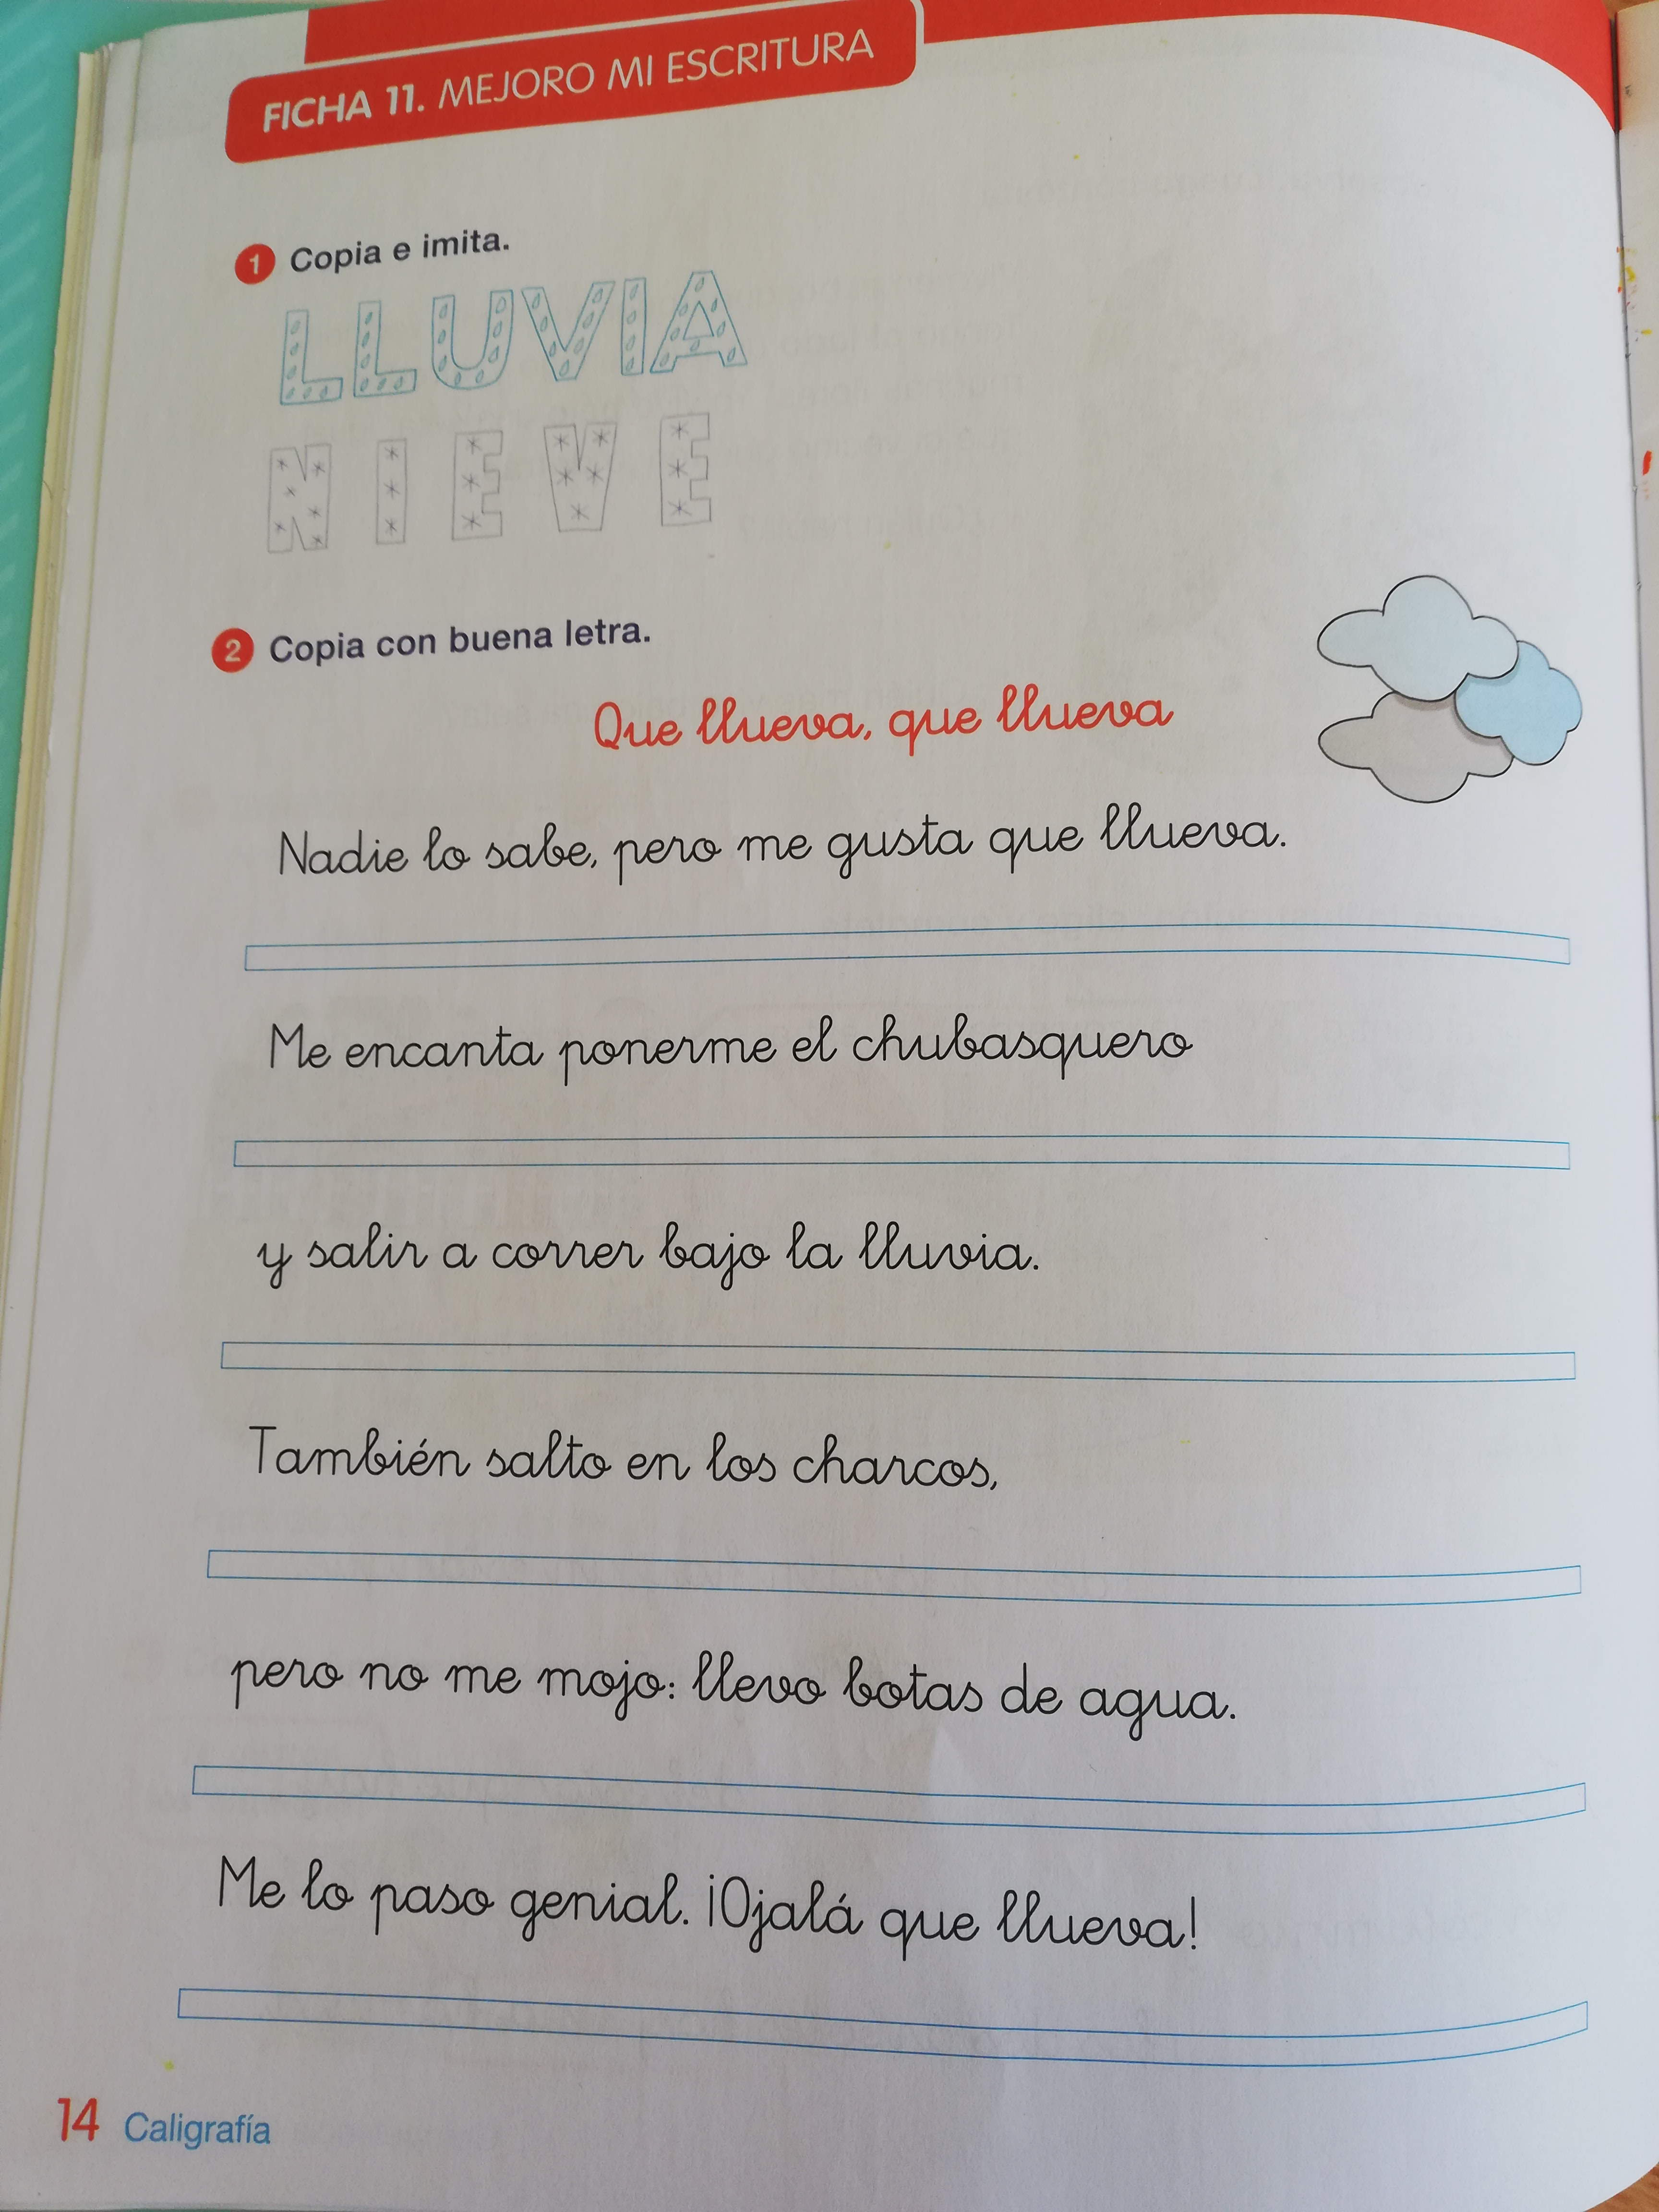 FICHA 11. MEJORO MI ESCRITURA
1 Copia e imita.
LLUVIA
NIEVE
2 Copia con buena letra.
Que llueva, que llueva
Nadie lo sabe, pero me gusta que llueva.
Me encanta ponerme el chubasquero
y salir a correr bajo la lluvia.
También salto en los charcos,
pero no me mojo: llevo botas de agua.
Me lo paso genial. ¡Ojalá que llueva!
14 Caligrafía